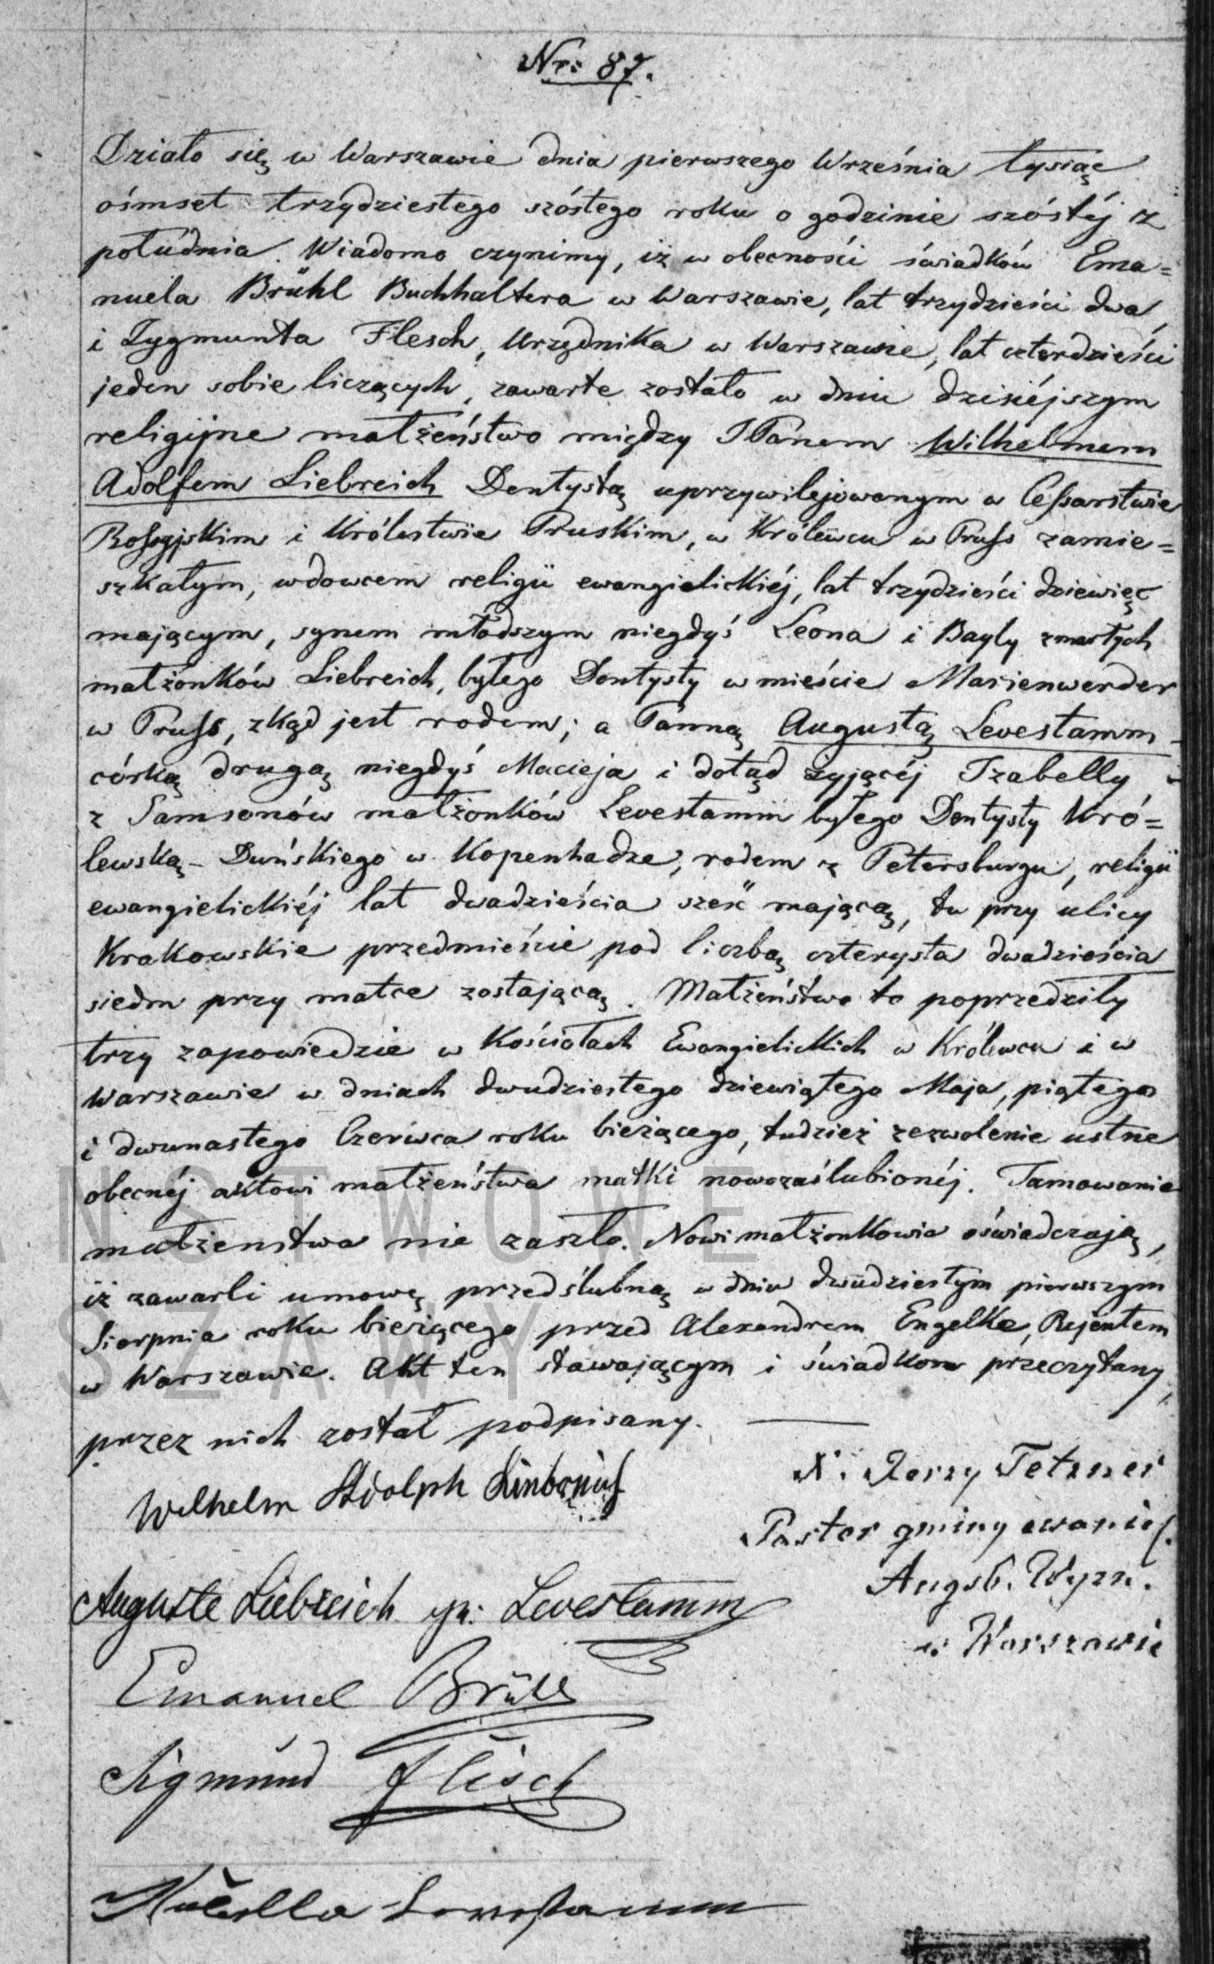 Nro 87.
Działo się w Warszawie dnia pierwszego Września tysiąc
ośmset trzydziestego szóstego roku o godzinie szóstéj z
południa. Wiadomo czynimy, iż w obecności świadków Ema=
nuela Brühl Buchhaltera w Warszawie, lat trzydzieści dwa,
i Zygmunta Flesch, Urzędnika w Warszawie, lat czterdzieści
jeden sobie liczących, zawarte zostało w dniu dzisiéjszym
religijne małżeństwo między JPanem Wilhelmem
Adolfem Liebreich Dentystą uprzywilejowanym w Cessarstwie
Rossyjskim i Królestwie Pruskim, w Królewcu w Pruss zamie=
szkałym, wdowcem religii ewangielickiéj, lat trzydzieści dziewięć
mającym, synem młodszym niegdyś Leona i Bayly zmarłych
małżonków Liebreich, byłego Dentysty w mieście Marienwerder
w Pruss, zkąd jest rodem; a Panną Augustą Levestamm
córką drugą niegdyś Macieja i dotąd żyjącéj Izabelly
z Samsonów małżonków Levestamm byłego Dentysty Kró=
lewską-Duńskiego w Kopenhadze, rodem z Petersburgu, religii
ewangielickiéj lat dwadzieścia sześć mającą, tu przy ulicy
Krakowskie przedmieście pod liczbą czterysta dwadzieścia
siedm przy matce zostającą. Małżeństwo to poprzedziły
trzy zapowiedzie w Kościołach Ewangielickich w Królewcu i w
Warszawie w dniach dwudziestego dziewiątego Maja, piątego
i dwunastego Czerwca roku bieżącego, tudzież zezwolenie ustne
obecnéj aktowi małżeństwa matki nowozaślubionéj. Tamowanie
małżenstwa nie zaszło. Nowi małżonkowie oświadczają,
iż zawarli umowę przedślubną w dniu dwudziestym pierwszym
Sierpnia roku bieżącego przed Alexandrem Engelke, Rejentem
w Warszawie. Akt ten stawającym i świadkom przeczytany,
przez nich został podpisany.
X. Jerzy Tetzner
Wilhelm Adolph Liebreich
Pastor gminy ewaniel.
Augsb. Wyzn.
Auguste Liebreich gn: Levestamm
w Warszawie
Emanuel Brühl
Sigmund Flesch
Levestamm